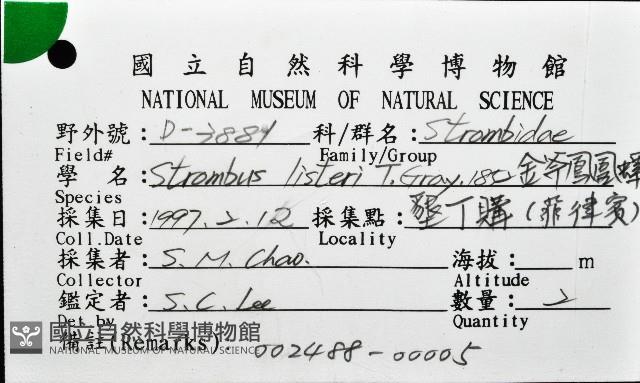 國立自然科學博物館
NATIONAL MUSEUM OF NATURAL SCIENCE
野外號: D-3881 科/群名: Strombidae
Field# Family/Group
學 名: Strombus listeri T. Gray, 1852 鳳凰螺
Species
採集日: 1997. 2. 12 採集點: 墾丁購(菲律賓)
Coll.Date Locality
採集者: S. M. Chao. 海拔: m
Collector Altitude
鑑定者: S. C. Lee 數量: 2
Det.by Quantity
備註(Remarks): 002488-00005
國立自然科學博物館
NATIONAL MUSEUM OF NATURAL SCIENCE